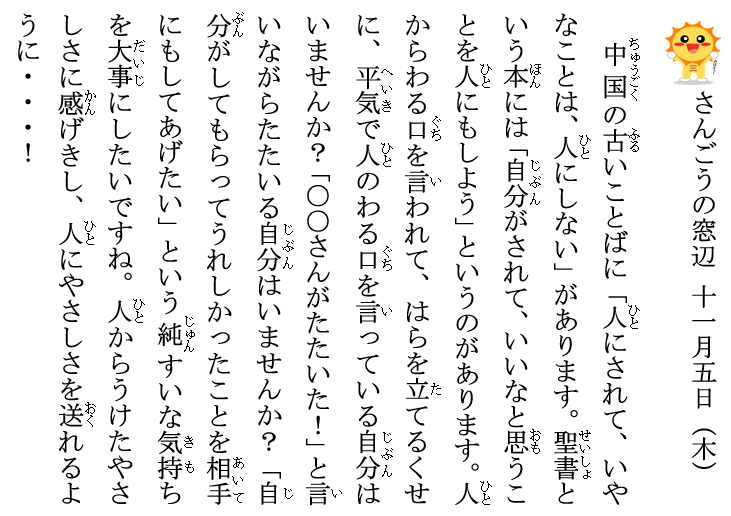 さんごうの窓辺 十一月五日（木）
中国の古いことばに「人にされて、いや
なことは、人にしない」があります。聖書と
いう本には「自分がされて、いいなと思うこ
とを人にもしよう」というのがあります。人
からわる口を言われて、はらを立てるくせ
に、平気で人のわる口を言っている自分は
いませんか？「○○さんがたたいた！」と言
いながらたたいる自分はいませんか？「自
分がしてもらってうれしかったことを相手
にもしてあげたい」という純すいな気持ち
を大事にしたいですね。人からうけたやさ
しさに感げきし、人にやさしさを送れるよ
うに・・・！